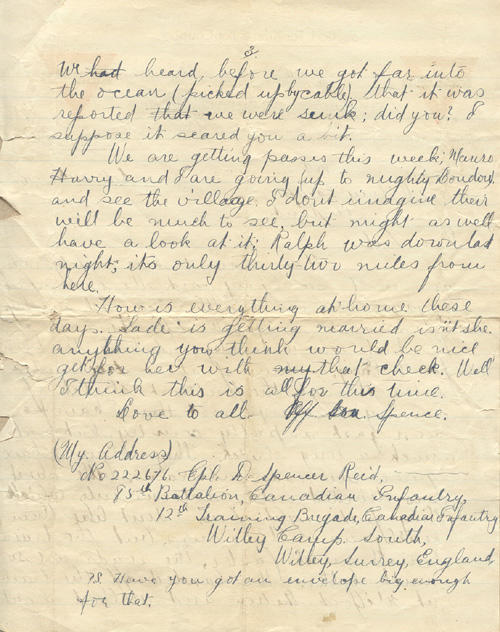 3.
We had heard, before we got far into
the ocean (picked up by cable) that it was
reported that we were sunk; did you? I
suppose it scared you a bit.
We are getting passes this week; Mauro
Harry and I are going up to mighty London
and see the village. I don't imagine their
will be much to see, but might as well
have a look at it; Ralph was down last
night; its only thirty-two miles from
here.
How is everything at home these
days. Sade is getting married isn't she.
anything you think would be nice
get for her with my that check. Well
I think this is all for this time.
Love to all Son Spence.
(My Address)
No 222676 Cpl. D. Spencer Reid.
85th Battalion, Canadian Infantry,
12th Training Brigade, Canadian Infantry
Witley Camp South,
Witley, Surrey, England
P.S. Have you got an envelope big enough
for that.